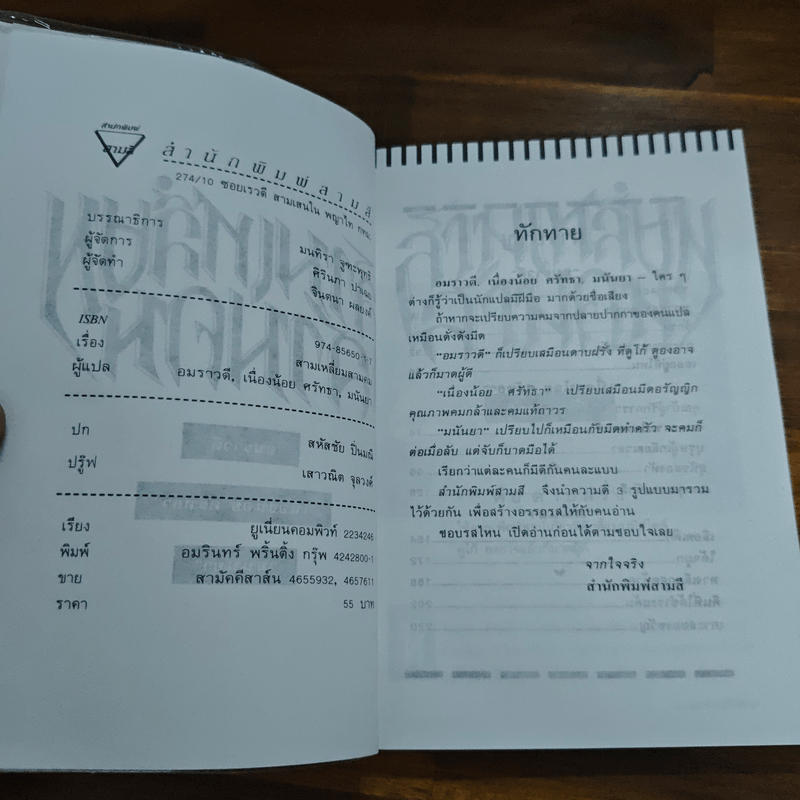 สำนักพิมพ์
สามสี
สำนักพิมพ์สามสี
274/10 ซอยเรวดี สามเสนใน พญาไท กทม.
บรรณาธิการ มนทิรา
ผู้จัดการ ศิรินภา
ผู้จัดทำ จินตนา ผลยงค์
ISBN 974-85650-1-7
เรื่อง สามเหลี่ยมสามคม
ผู้แปล อมราวดี, เนื่องน้อย ศรัทธา, มนันยา
ปก สหัสชัย ปิ่นมณี
ปรู๊ฟ เสาวณิต จุลวงศ์
เรียง ยูเนี่ยนคอมพิวท์ 2234246
พิมพ์ อมรินทร์ พริ้นติ้ง กรุ๊พ 4242800-1
ขาย สามัคคีสาส์น 4655932, 4657611
ราคา 55 บาท
ทักทาย
อมราวดี, เนื่องน้อย ศรัทธา, มนันยา – ใคร ๆ
ต่างก็รู้ว่าเป็นนักแปลมีฝีมือ มากด้วยชื่อเสียง
ถ้าหากจะเปรียบความคมจากปลายปากกาของคนแปล
เหมือนดั่งดังมีด
"อมราวดี" ก็เปรียบเสมือนดาบฝรั่ง ที่ดูโก้ ดูองอาจ
แล้วก็มาดผู้ดี
"เนื่องน้อย ศรัทธา" เปรียบเสมือนมีดอรัญญิก
คุณภาพคมกล้าและคมแท้ถาวร
"มนันยา" เปรียบไปก็เหมือนกับมีดทำครัว จะคมก็
ต่อเมื่อลับ แต่จับก็บาดมือได้
เรียกว่าแต่ละคนก็มีดีกันคนละแบบ
สำนักพิมพ์สามสี จึงนำความดี 3 รูปแบบมารวม
ไว้ด้วยกัน เพื่อสร้างอรรถรสให้กับคนอ่าน
ชอบรสไหน เปิดอ่านก่อนได้ตามชอบใจเลย
จากใจจริง
สำนักพิมพ์สามสี